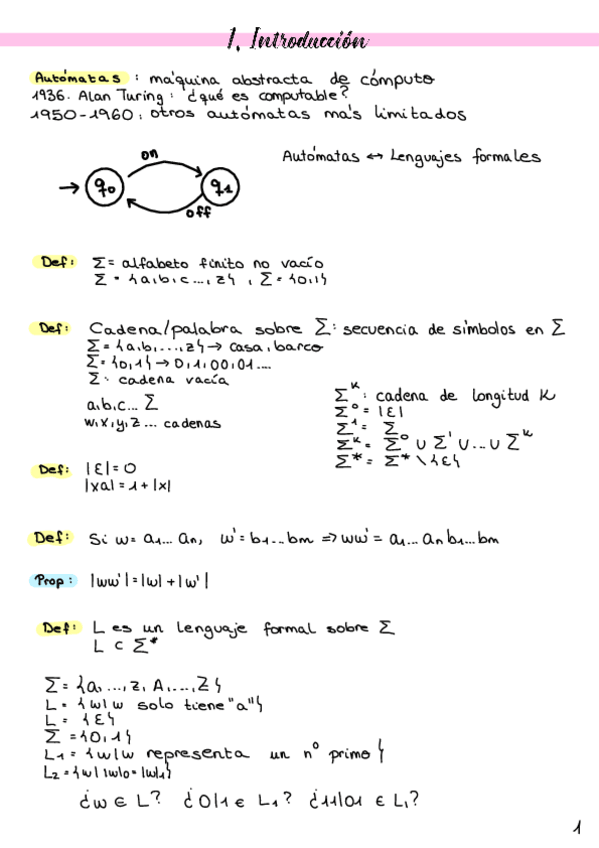 1. Introducción
Autómatas : máquina abstracta de cómputo
1936. Alan Turing : ¿qué es computable?
1950-1960 : otros autómatas más limitados
on
q0 q1
off
Autómatas ↔ Lenguajes formales
Def: Σ = alfabeto finito no vacío
Σ = {a,b,c...,z} , Σ = {0,1}
Def: Cadena/palabra sobre Σ: secuencia de símbolos en Σ
Σ = {a,b,...,z} → casa, barco
Σ = {0,1} → 0,1,00,01....
Σ: cadena vacía
a,b,c... Σ
w,x,y,z... cadenas
Σ^k : cadena de longitud k
Σ^0 = |ε|
Σ^1 = Σ
Σ^k = Σ^0 ∪ Σ^1 ∪ ... ∪ Σ^k
Σ* = Σ* \ {ε}
Def: |ε| = 0
|xa| = 1 + |x|
Def: Si w = a1... an, w' = b1... bm => ww' = a1... an b1... bm
Prop: |ww'| = |w| + |w'|
Def: L es un lenguaje formal sobre Σ
L ⊂ Σ*
Σ = {a, ..., z, A, ..., Z}
L = {w|w solo tiene "a"}
L = {ε}
Σ = {0,1}
L1 = {w|w representa un nº primo}
L2 = {w| |w|0 = |w|1}
¿w ∈ L? ¿011 ∈ L1? ¿1101 ∈ L1?
1